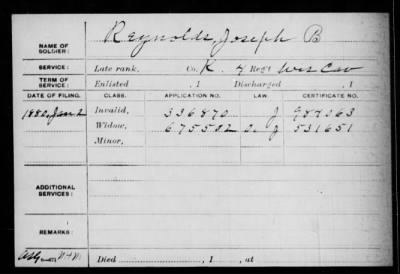 Reynolds, Joseph B
NAME OF SOLDIER:
SERVICE: Late rank, Co. K. 4 Reg't Wis Cav
TERM OF SERVICE: Enlisted , 1 Discharged , 1
DATE OF FILING. CLASS. APPLICATION NO. LAW. CERTIFICATE NO.
1880, Jan 2 Invalid, 336870 J 987063
Widow, 675502 J 531651
Minor,
ADDITIONAL SERVICES:
REMARKS:
Died , 1 , at